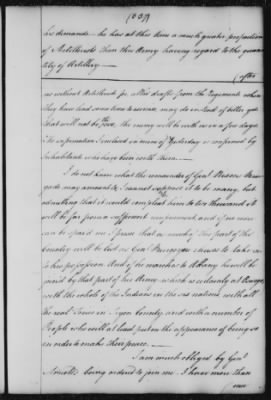 (337)
his demands — he has at this time a much greater proportion
of Artillerists than this Army having regard to the quan-
tity of Artillery —
(after
as without Artillerists for a
draft from the Regiments when
they have had some time to exercise may do instead of better year
that will not be the
enemy will be with us in a few days
The information I inclosed in mine of Yesterday is confirmed by
Inhabitants who have been with them —
I do not know what the remainder of Genl Nixons Brigade
may amount to I cannot suppose it to be many, but
admitting that it would compleat them to five thousand it
will be far from a sufficient
and if no more
can be spared me I press that as much of this part of the
Country will be lost as Genl Burgoyne chuses to take in-
to his possession and if he marches to Albany he will be
joined by that part of his Army which is certainly at Oswego
with the whole of the Indians in the six nations with all
the real Tories in Tryon County and with a number of
People who will at least put on the appearance of being so
in order to make their peace —
I am much obliged by Genl
Arnold's being ordered to join me. I have more than
once